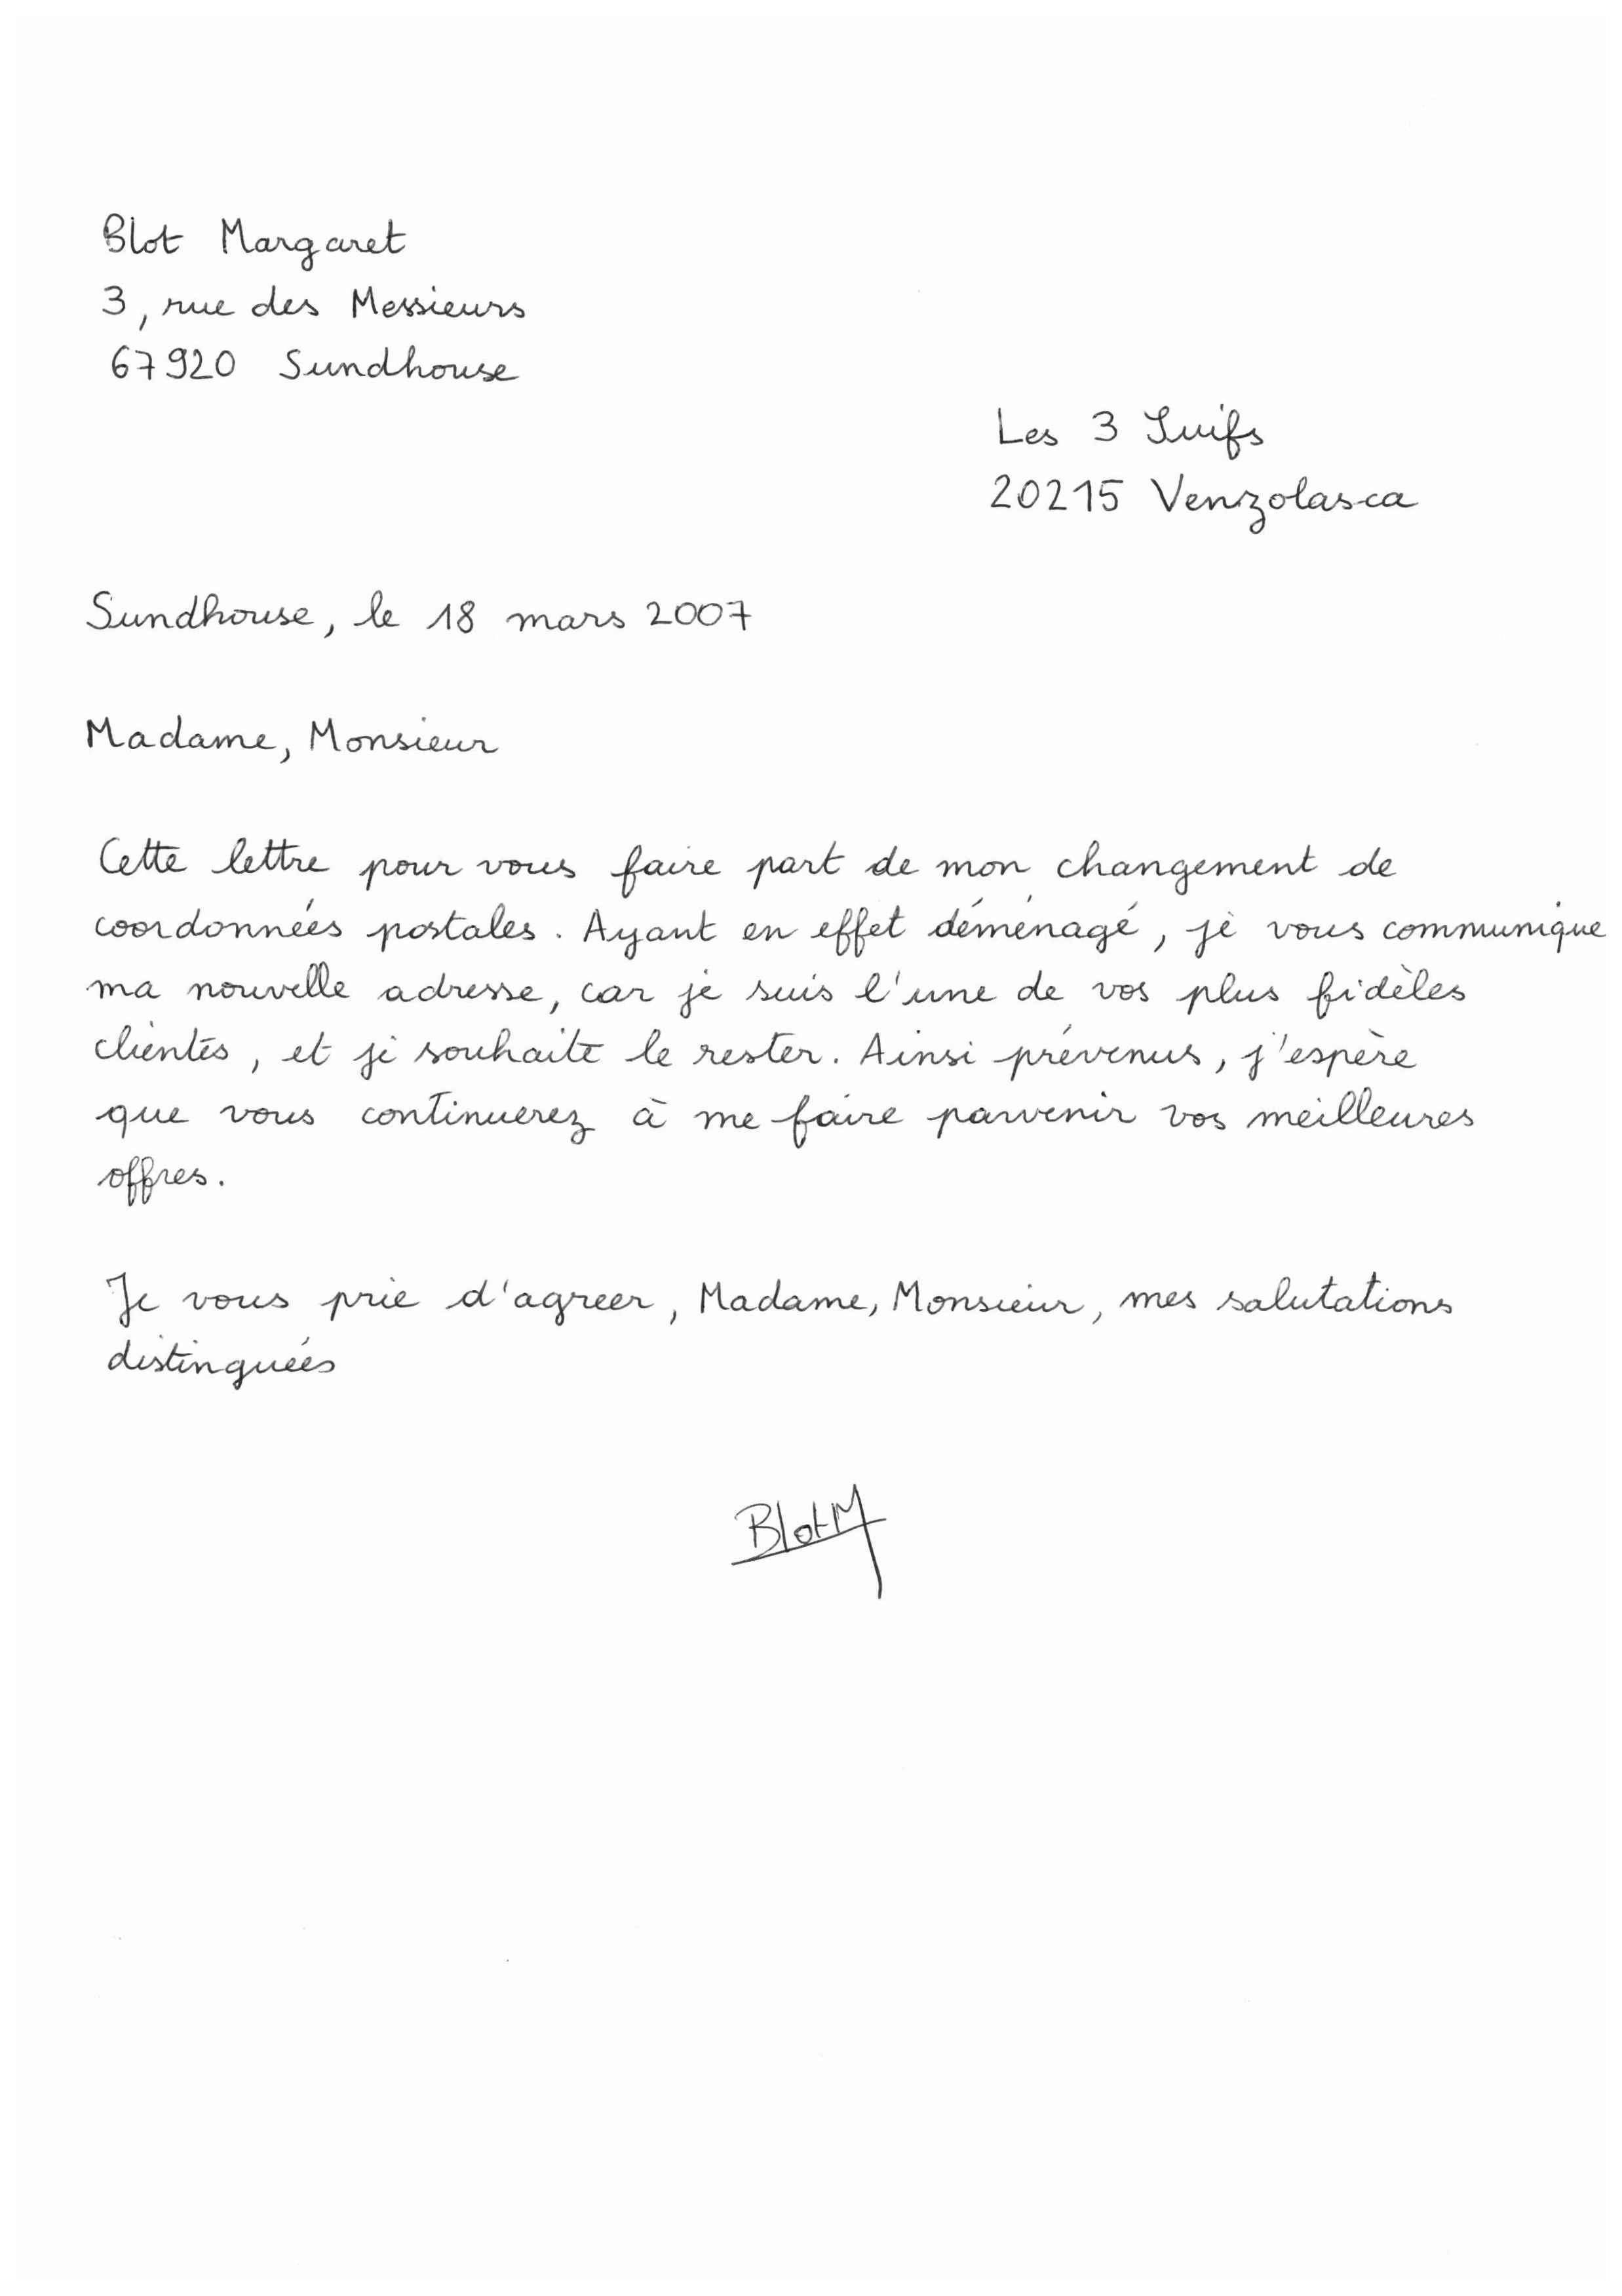 Blot Margaret
3, rue des Messieurs
67920 Sundhouse
Les 3 Suifs
20215 Venzolasca
Sundhouse, le 18 mars 2007
Madame, Monsieur
Cette lettre pour vous faire part de mon changement de
coordonnées postales. Ayant en effet déménagé, je vous communique
ma nouvelle adresse, car je suis l'une de vos plus fidèles
clientes, et je souhaite le rester. Ainsi prévenus, j'espère
que vous continuerez à me faire parvenir vos meilleures
offres.
Je vous prie d'agreer, Madame, Monsieur, mes salutations
distinguées
Blot M